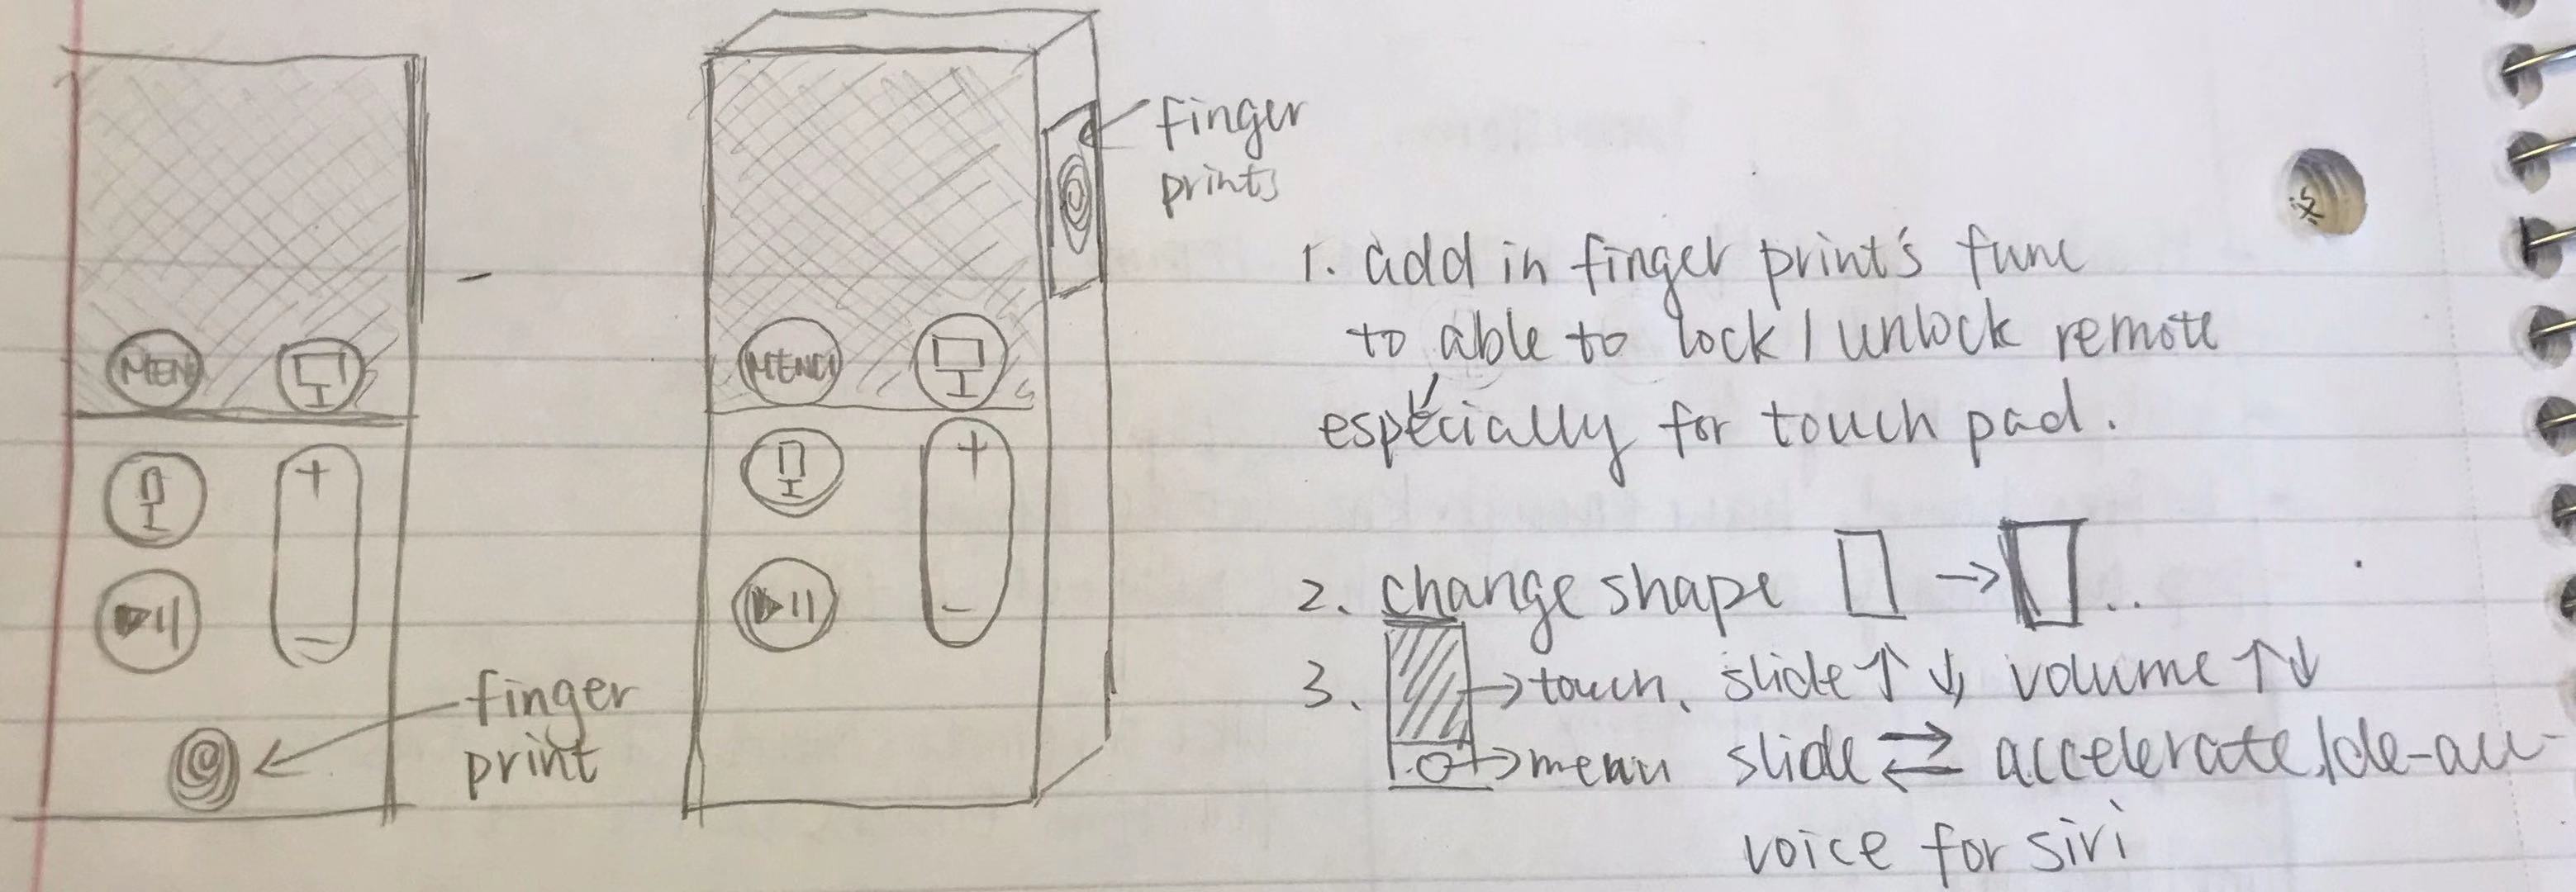 MEN
+
-
finger
print
MENU
+
-
finger
prints
1. add in finger print's func
to able to lock / unlock remote
especially for touch pad.
2. change shape → ..
3. → touch, slide ↑ ↓, volume ↑↓
→ menu slide ⇄ accelerate/de-acc-
voice for siri